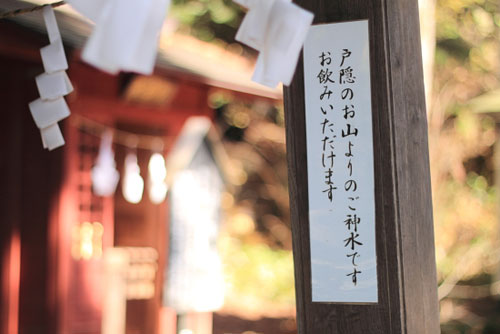 戸隠のお山よりのご神水です
お飲みいただけます